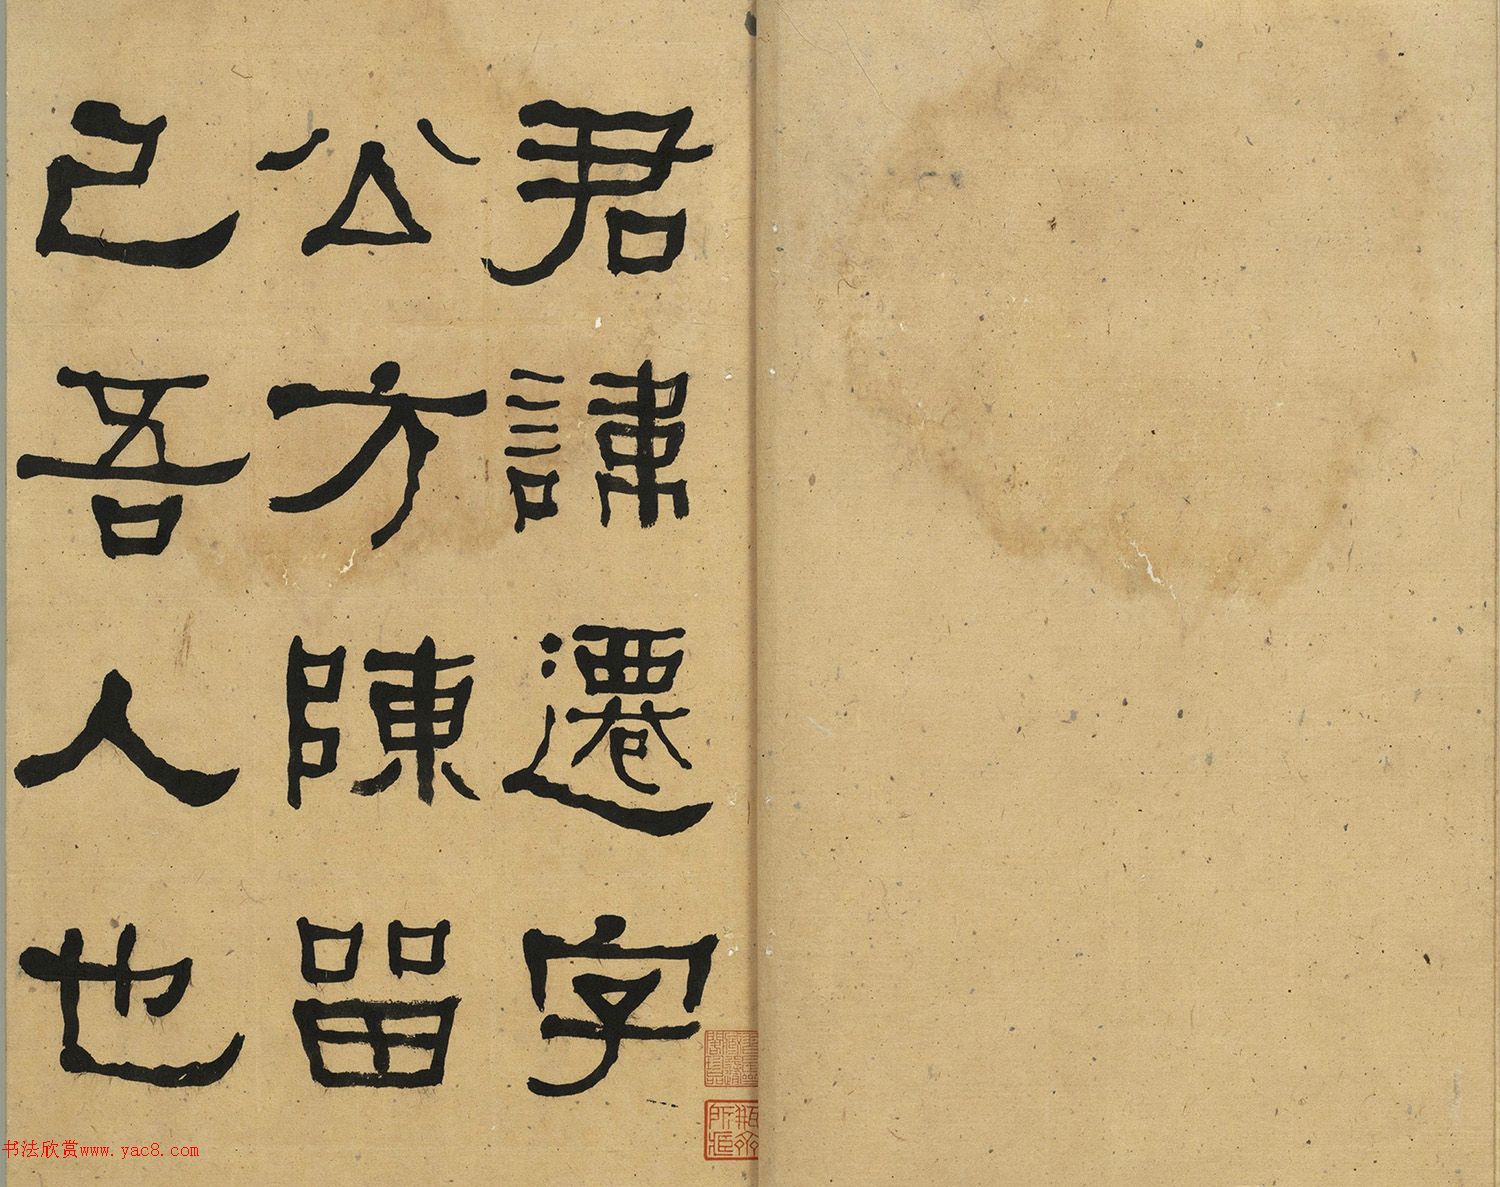 君諱遷字
公方陳留
己吾人也
书法欣赏www.yac8.com